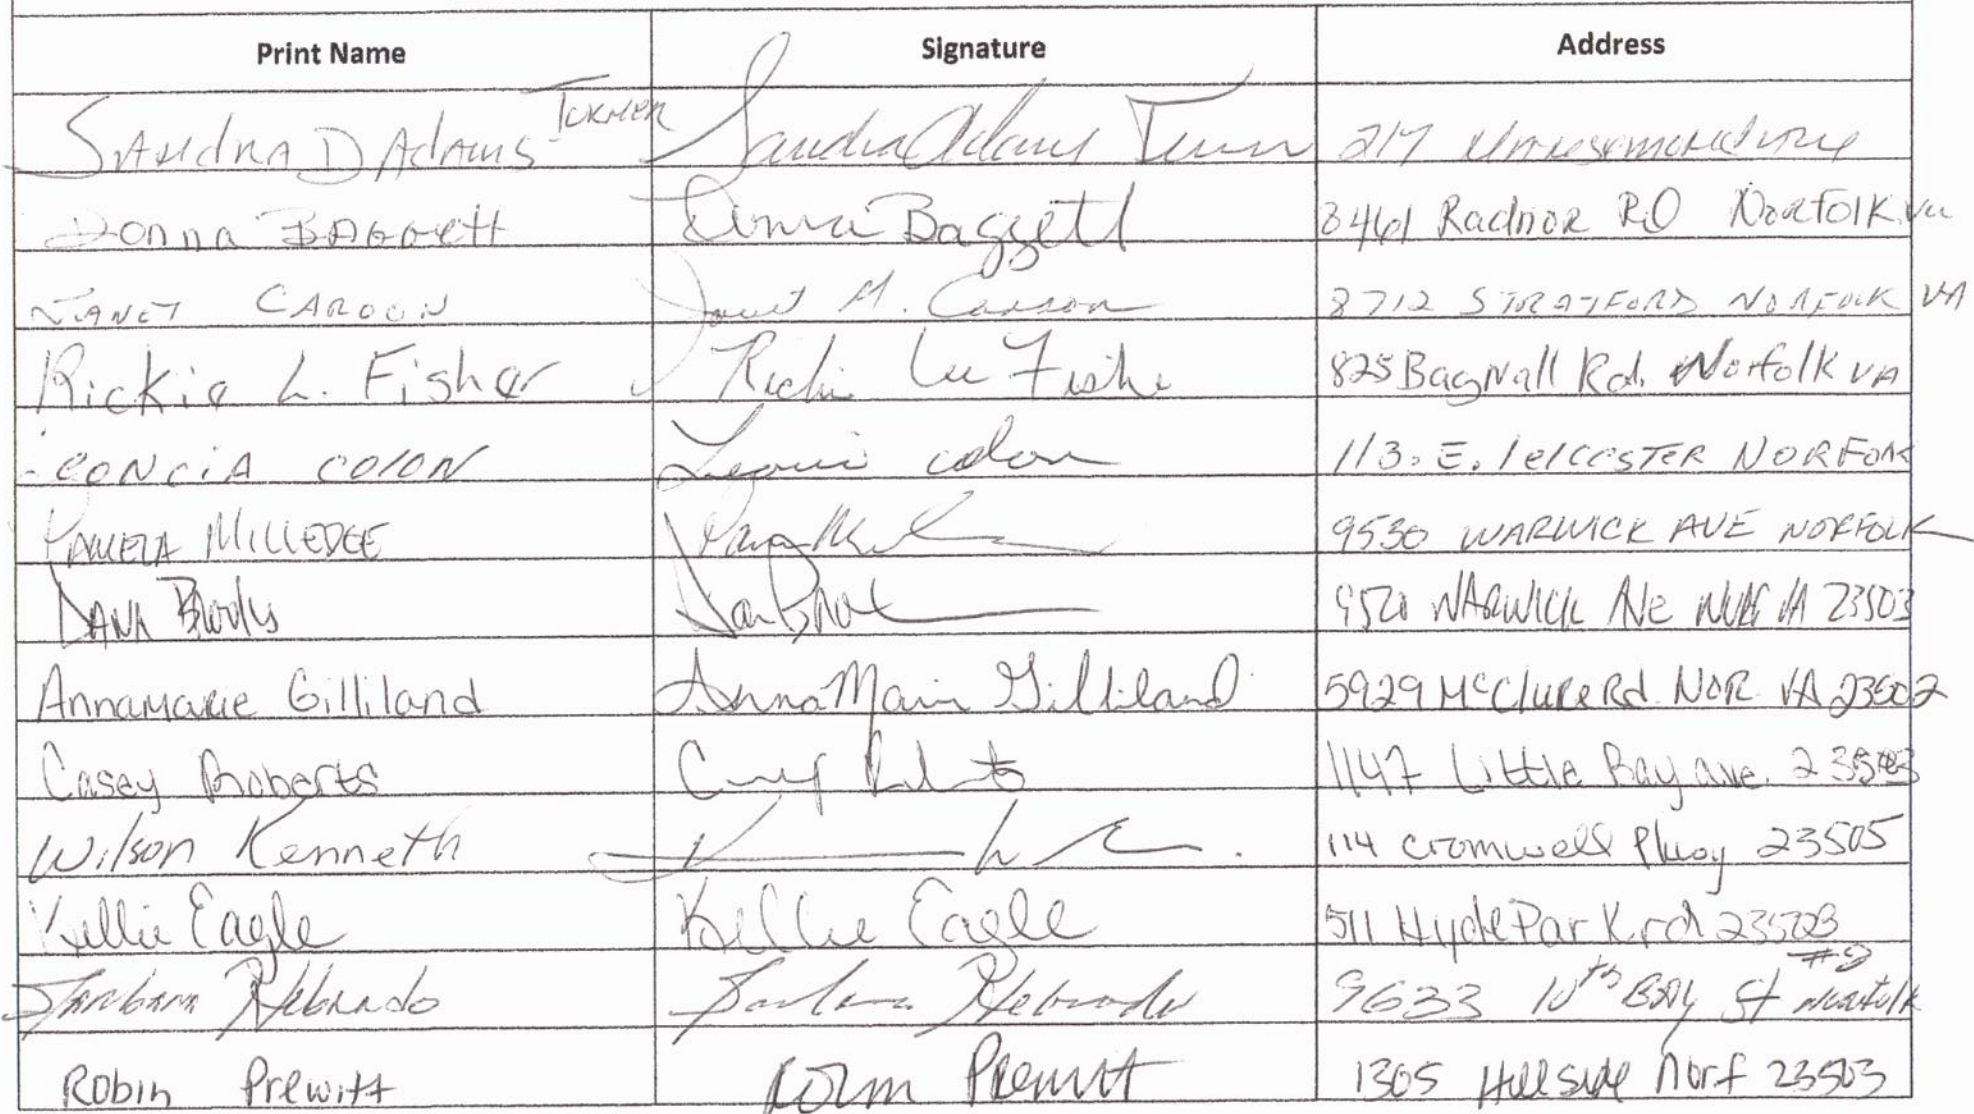 Print Name Signature Address
Sandra D Adams Turner Sandra Adams Turner 217
Donna Baggett Donna Baggett 8461 Radnor RD Norfolk Va
Janet Carson Janet M. Carson 8712 Stratford Norfolk VA
Rickie L. Fisher Rickie Lee Fisher 825 Bagnall Rd. Norfolk VA
Colon Colon 113. E. leiccester Norfolk
Pamela Milledge 9530 Warwick Ave Norfolk
Dana Brooks 9520 Warwick Ave VA 23503
Annamarie Gilliland AnnaMarie Gilliland 5929 McClure Rd. Nor. VA 23502
Casey Roberts Casey Roberts 1147 Little Bay ave. 23503
Wilson Kenneth 114 Cromwell Pkwy 23505
Kellie Eagle Kellie Eagle 511 Hyde Park rd 23503
Barbara Barbara 9633 10th Bay St #2 Norfolk
Robin Prewitt Robin Prewitt 1305 Hillside Norf 23503